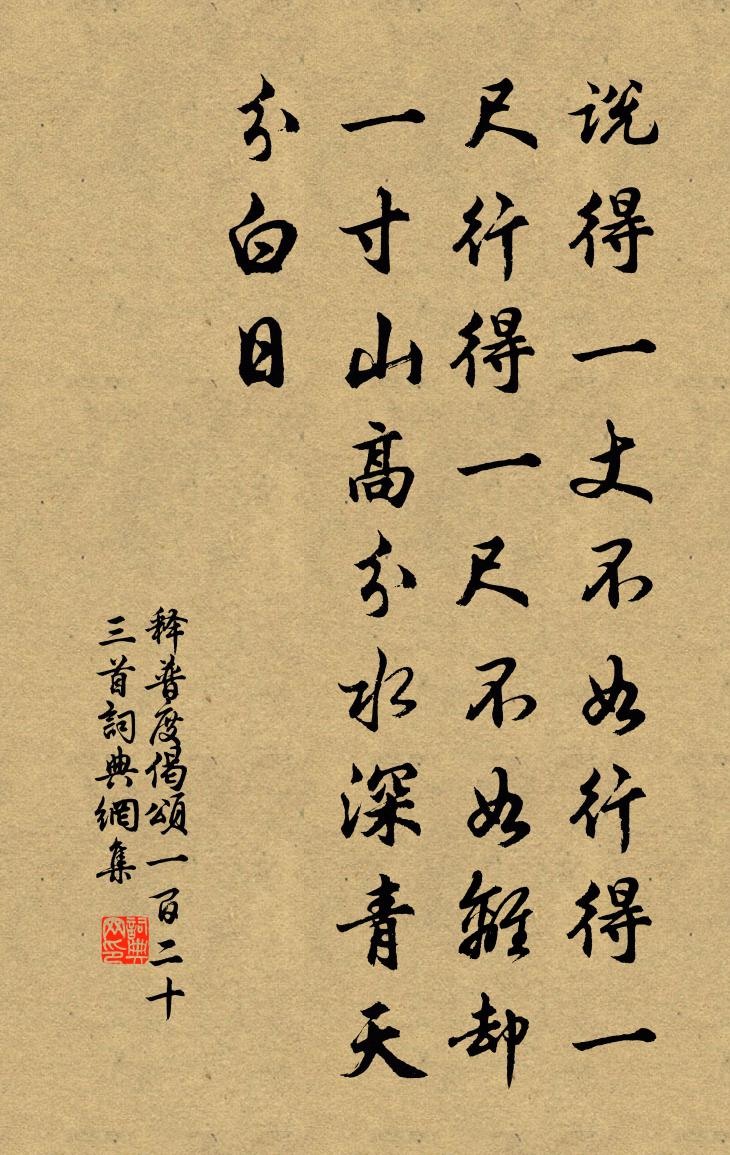 说得一丈不如行得一
尺行得一尺不如離却
一寸山高分水深青天
分白日
释普度偈頌一百二十
三首詞典網集
詞典
网印